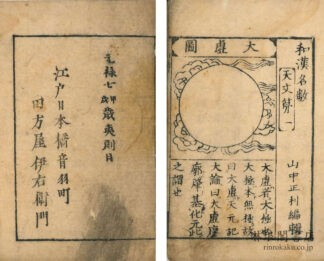 和漢名數
天文第一
山中正利編輯
大虚圖
大虚者大極也
大極本無極故
曰大虚天元記
大論曰大虚廖
廓肇基化元此
之謂也
元祿七甲戌歳夷則日
江戸日本橋音羽町
四方屋伊右衛門
rinrokaku.co.jp